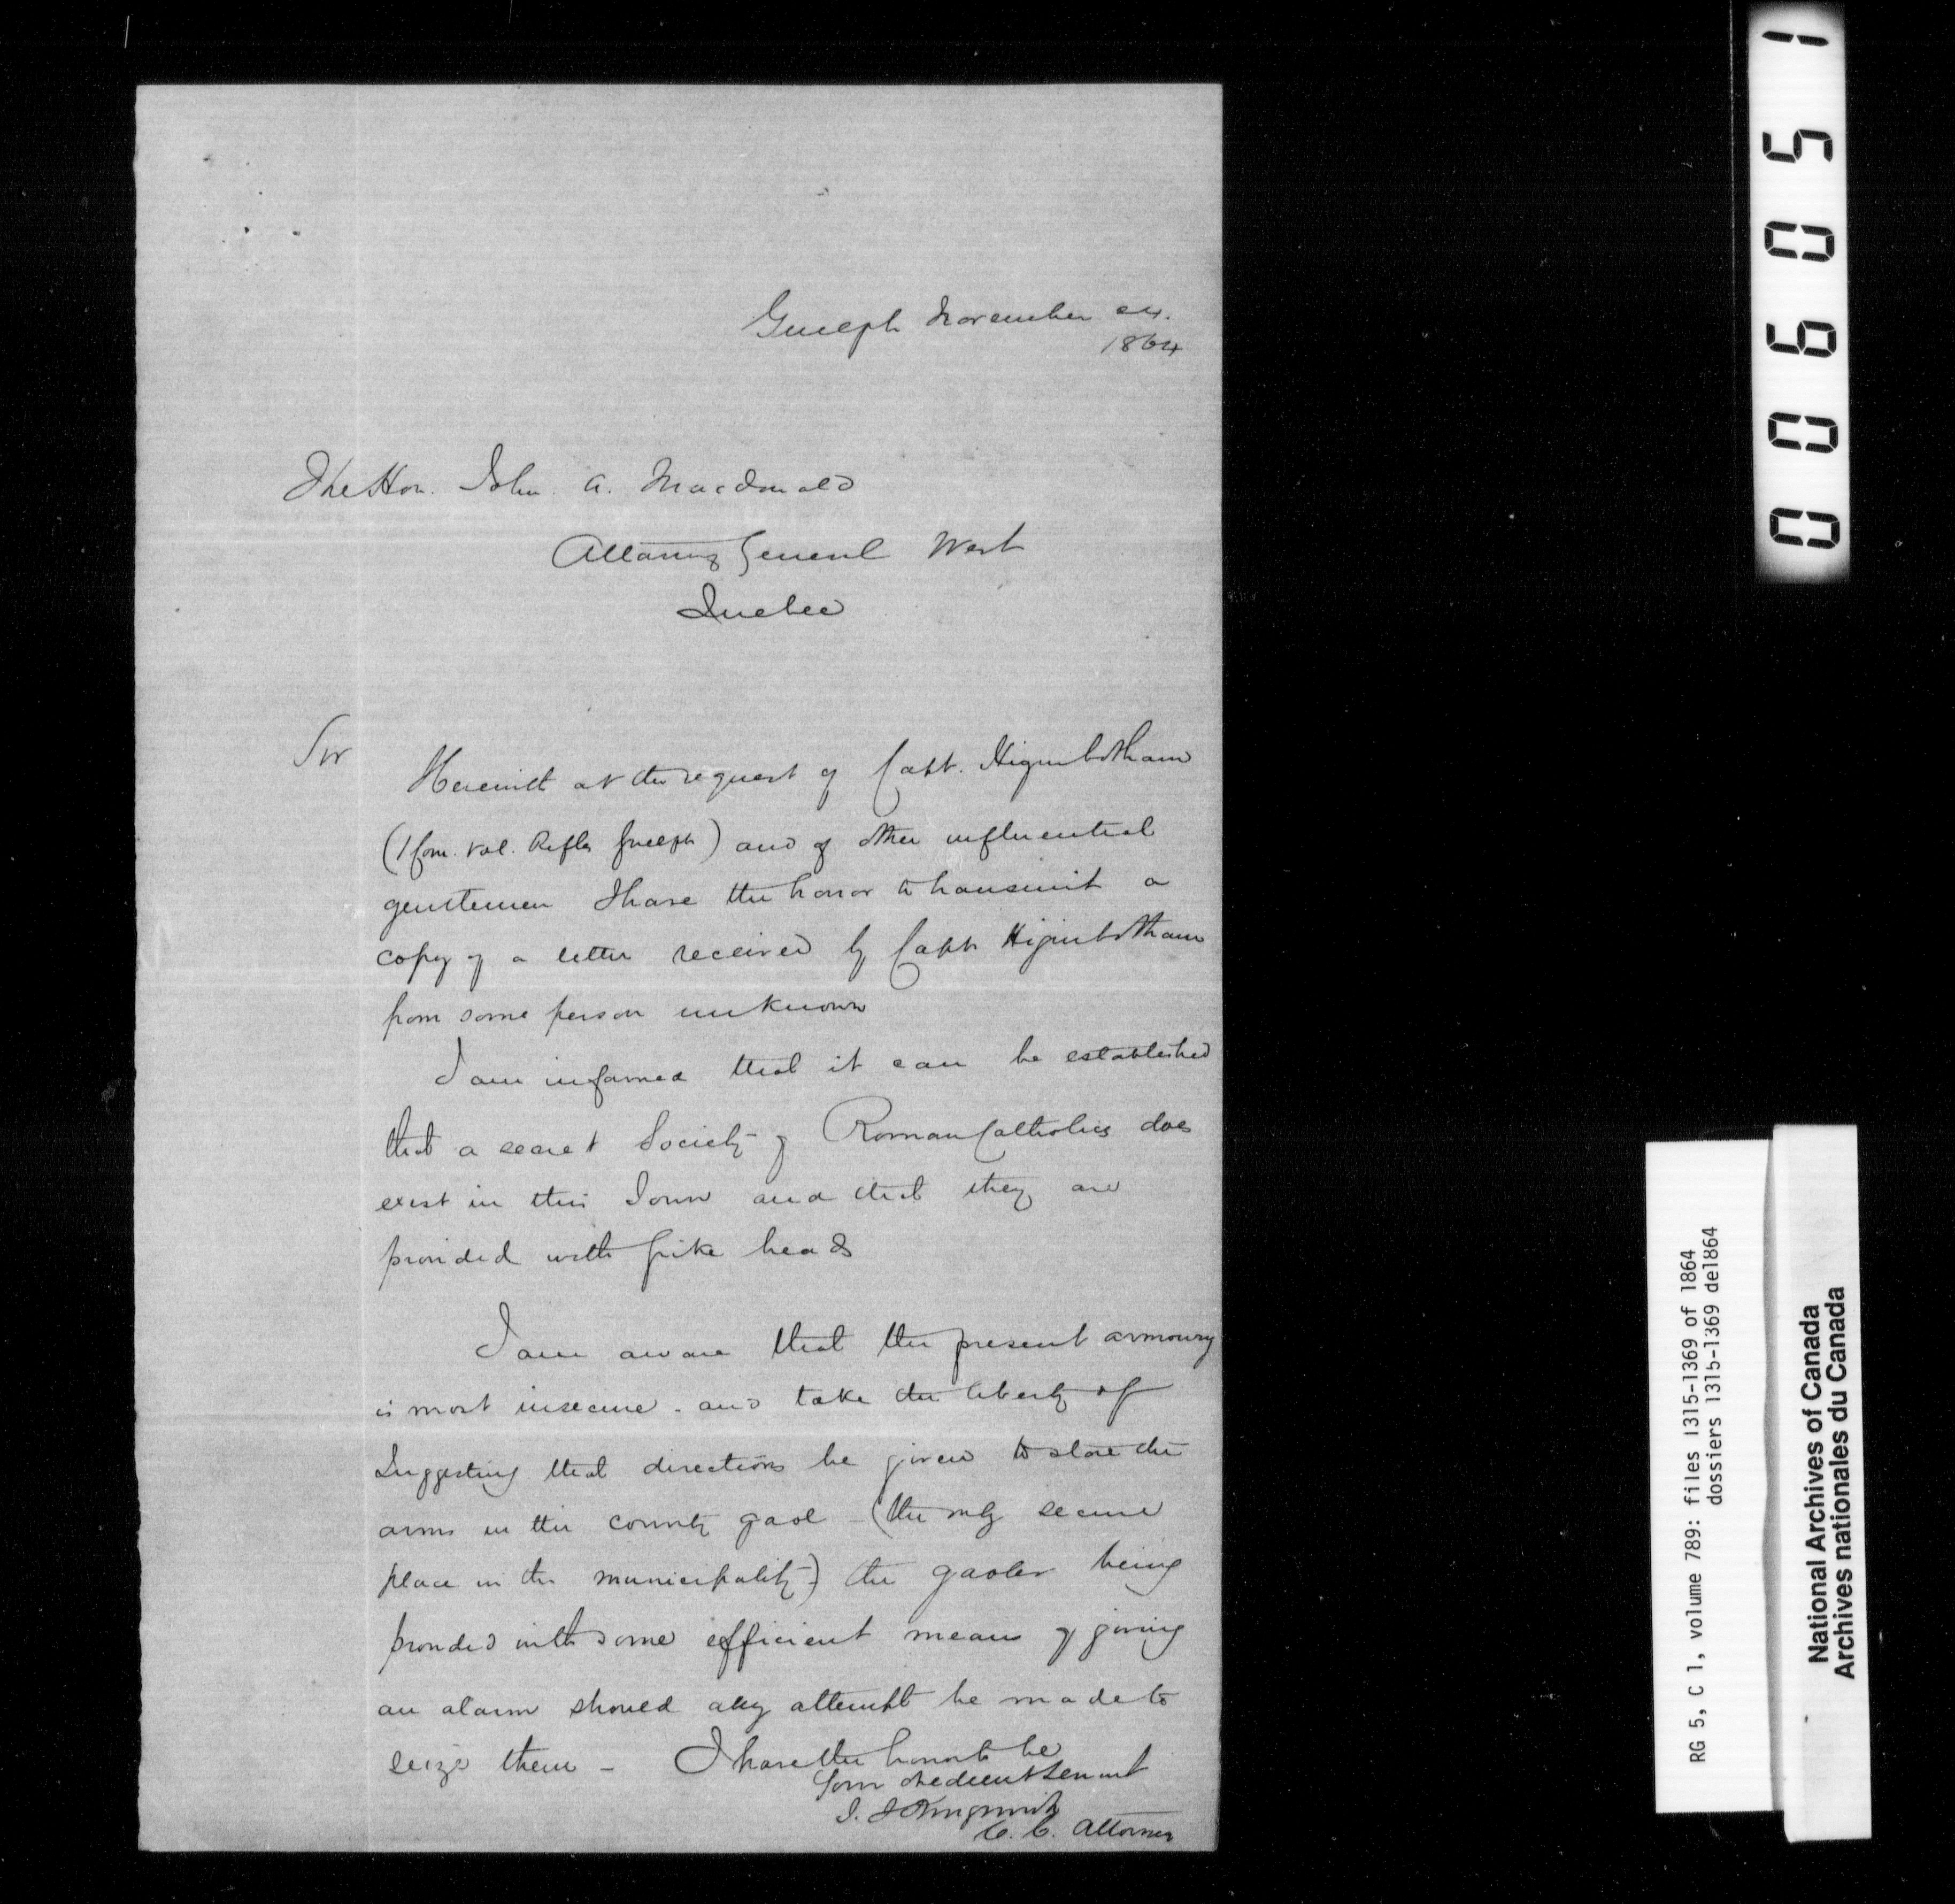 Guelph November 24.
1864
The Hon. John A. Macdonald
Attorney General West
Quebec
Sir
Herewith at the request of Capt. Higinbotham
(1 Com. Vol. Rifles Guelph) and of other influential
gentlemen I have the honor to transmit a
copy of a letter received by Capt Higinbotham
from some person unknown
I am informed that it can be established
that a secret Society of Roman Catholics does
exist in this Town and that they are
provided with pike heads
I am aware that the present armoury
is most insecure - and take the liberty of
Suggesting that directions be given to store the
arms in the county gaol - (the only secure
place in the municipality) the gaoler being
provided with some efficient means of giving
an alarm should any attempt be made to
seize them - I have the honor to be
Your obedient Servant
C. C. Attorney
000605 1
RG 5, C 1, volume 789: files 1315-1369 of 1864
dossiers 1315-1369 de1864
National Archives of Canada
Archives nationales du Canada